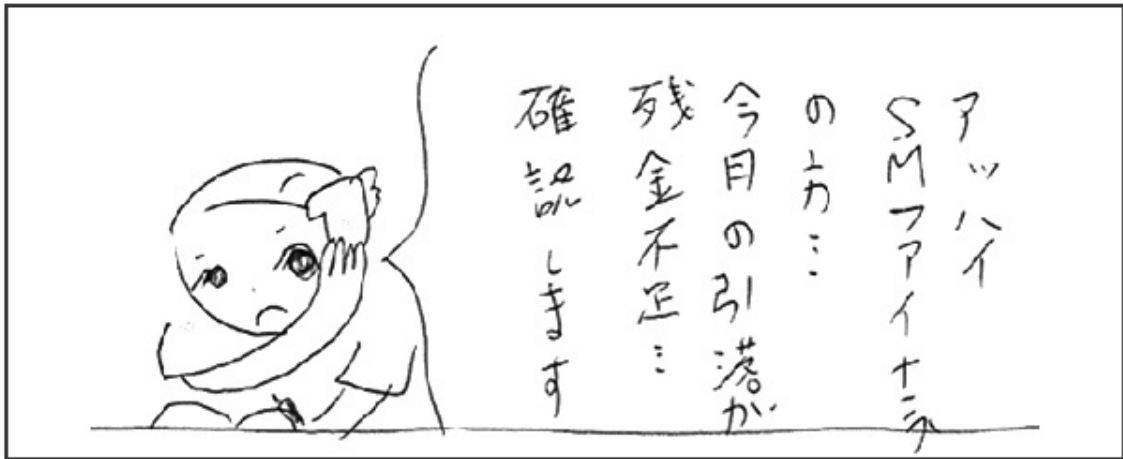 アッハイ
SMファイナンス
の方…
今月の引落が
残金不足…
確認します